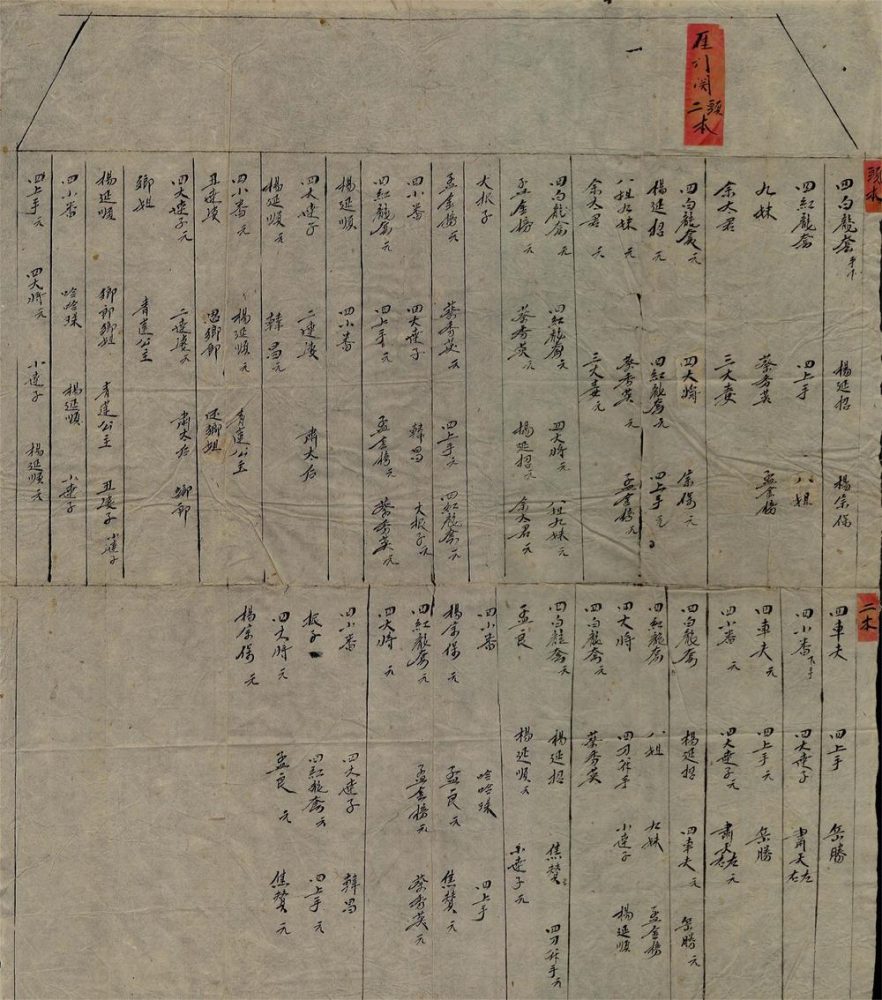 雁门関
頭二本
頭本
四白龍套 手下 楊延招 楊宗保
四紅龍套 四上手 八姐
九妹 蔡秀英 孟金榜
余太君
四白龍套 元 四大將 宗保 元
楊延招 元 四紅龍套 元 四上手 元
八姐九妹 元 蔡秀英 元 孟金榜 元
余太君 元 元
四白龍套 元 四紅龍套 元 四大將 元 八姐九妹 元
孟金榜 元 蔡秀英 元 楊延招 元 余太君 元
大板子
孟金榜 元 蔡秀英 元 四上手 元 四紅龍套 元
四小番 四大達子 韓昌 大板子 元
四紅龍套 元 四上手 元 孟金榜 元 蔡秀英 元
楊延順 四小番
四大達子 二達婆 肅太后
楊延順 元 韓昌 元
四小番 元 楊延順 元 青蓮公主
丑達婆
四大達子 元 二達婆 元 肅太后 鄉郎
鄉姐 青蓮公主
楊延順 鄉郎鄉姐 青蓮公主 丑婆子 小達子
四小番 哈哈珠 楊延順 小達子
四上手 元 四大將 元 小達子 楊延順 元
二本
四車夫 四上手 岳勝
四小番 下手 四大達子 肅天左右
四車夫 元 四上手 元 岳勝
四小番 元 四大達子 元 肅天左右 元
四白龍套 楊延招 四車夫 元 岳勝 元
四紅龍套 八姐 九妹 孟金榜
四大將 四刀斧手 小達子 楊延順
四白龍套 元 蔡秀英
四白龍套 元 楊延招 焦贊 四刀斧手 元
孟良 楊延順 元 小達子 元
四小番 哈哈珠 四上手
楊宗保 元 孟良 元 焦贊 元
四紅龍套 元 孟金榜 元 蔡秀英 元
四大將 元
四小番 四大達子 韓昌
板子 四紅龍套 元 四上手 元
四大將 元 孟良 元 焦贊 元
楊宗保 元